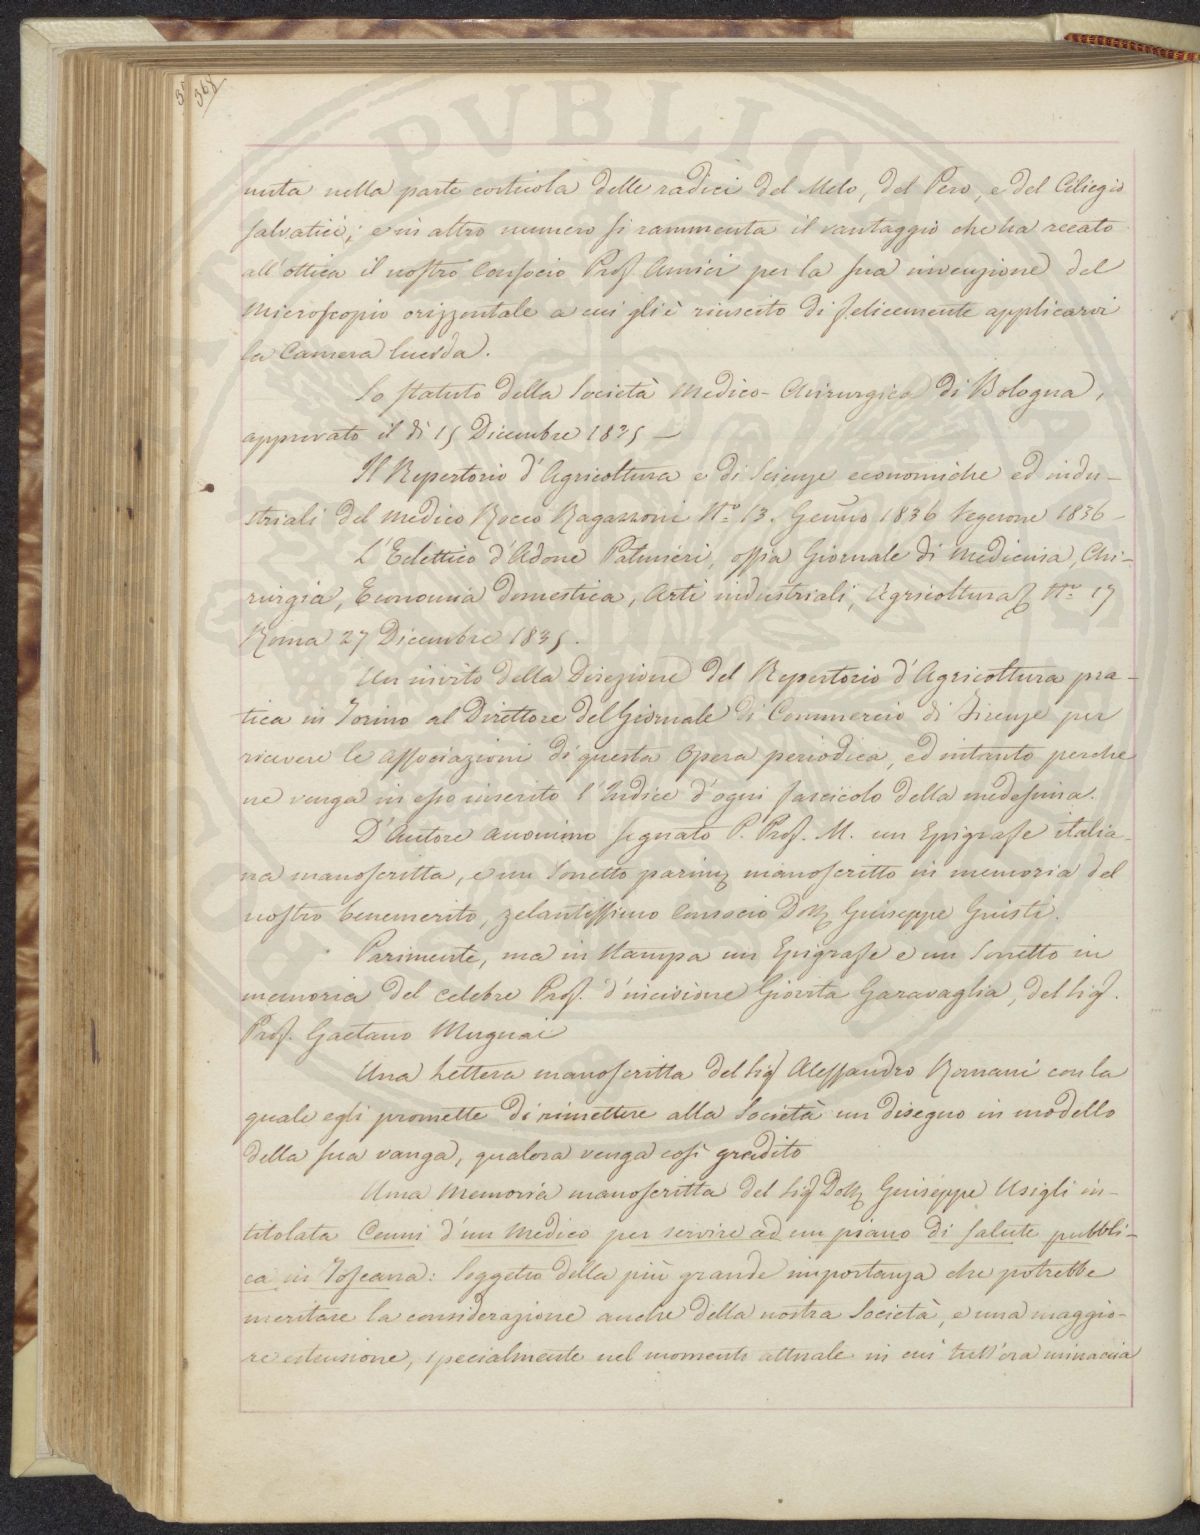 368
nuta nella parte corticola delle radici del Melo, del Pero, e del Ciliegio
salvatici; e in altro numero si rammenta il vantaggio che ha recato
all'ottica il nostro Consocio Prof. Amici per la sua invenzione del
Microscopio orizzontale a cui gli è riuscito di felicemente applicarvi
la Camera lucida.
Lo statuto della Società Medico-Chirurgica di Bologna,
approvato il dì 15 Dicembre 1835 —
Il Repertorio d'Agricoltura e di Scienze economiche ed indu-
striali del medico Rocco Ragazzoni N.º 13. Gennº 1836
L'Eclettico d'Adone Palmieri, ossia Giornale di Medicina, Chi-
rurgia, Economia domestica, Arti industriali, Agricoltura N.º 17
Roma 27 Dicembre 1835.
Un invito della Direzione del Repertorio d'Agricoltura pra-
tica in Torino al Direttore del Giornale di Commercio di Firenze per
ricevere le associazioni di questa Opera periodica, ed intanto perche
ne venga in esso inserito l'Indice d'ogni fascicolo della medesima.
D'Autore anonimo segnato P. Prof. M. un Epigrafe italia-
na manoscritta, e un Sonetto manoscritto in memoria del
nostro benemerito, zelantissimo Consocio Dott Giuseppe Giusti.
Parimente, ma in stampa un Epigrafe e un Sonetto in
memoria del celebre Prof. d'incisione Giovita Garavaglia, del Sig.
Prof. Gaetano Mugnai
Una Lettera manoscritta del Sig Alessandro Romani con la
quale egli promette di rimettere alla Società un disegno in modello
della sua vanga, qualora venga così gradito
Una Memoria manoscritta del Sig Dott Giuseppe Usigli in-
titolata Cenni d'un Medico per servire ad un piano di salute pubbli-
ca in Toscana: Soggetto della più grande importanza che potrebbe
meritare la considerazione anche della nostra Società, e una maggio-
re estensione, specialmente nel momento attuale in cui tutt'ora minaccia